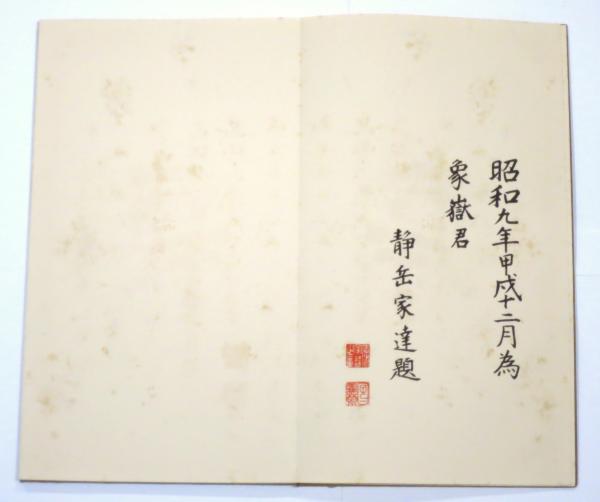 昭和九年甲戌十二月為
象嶽君
静岳家達題